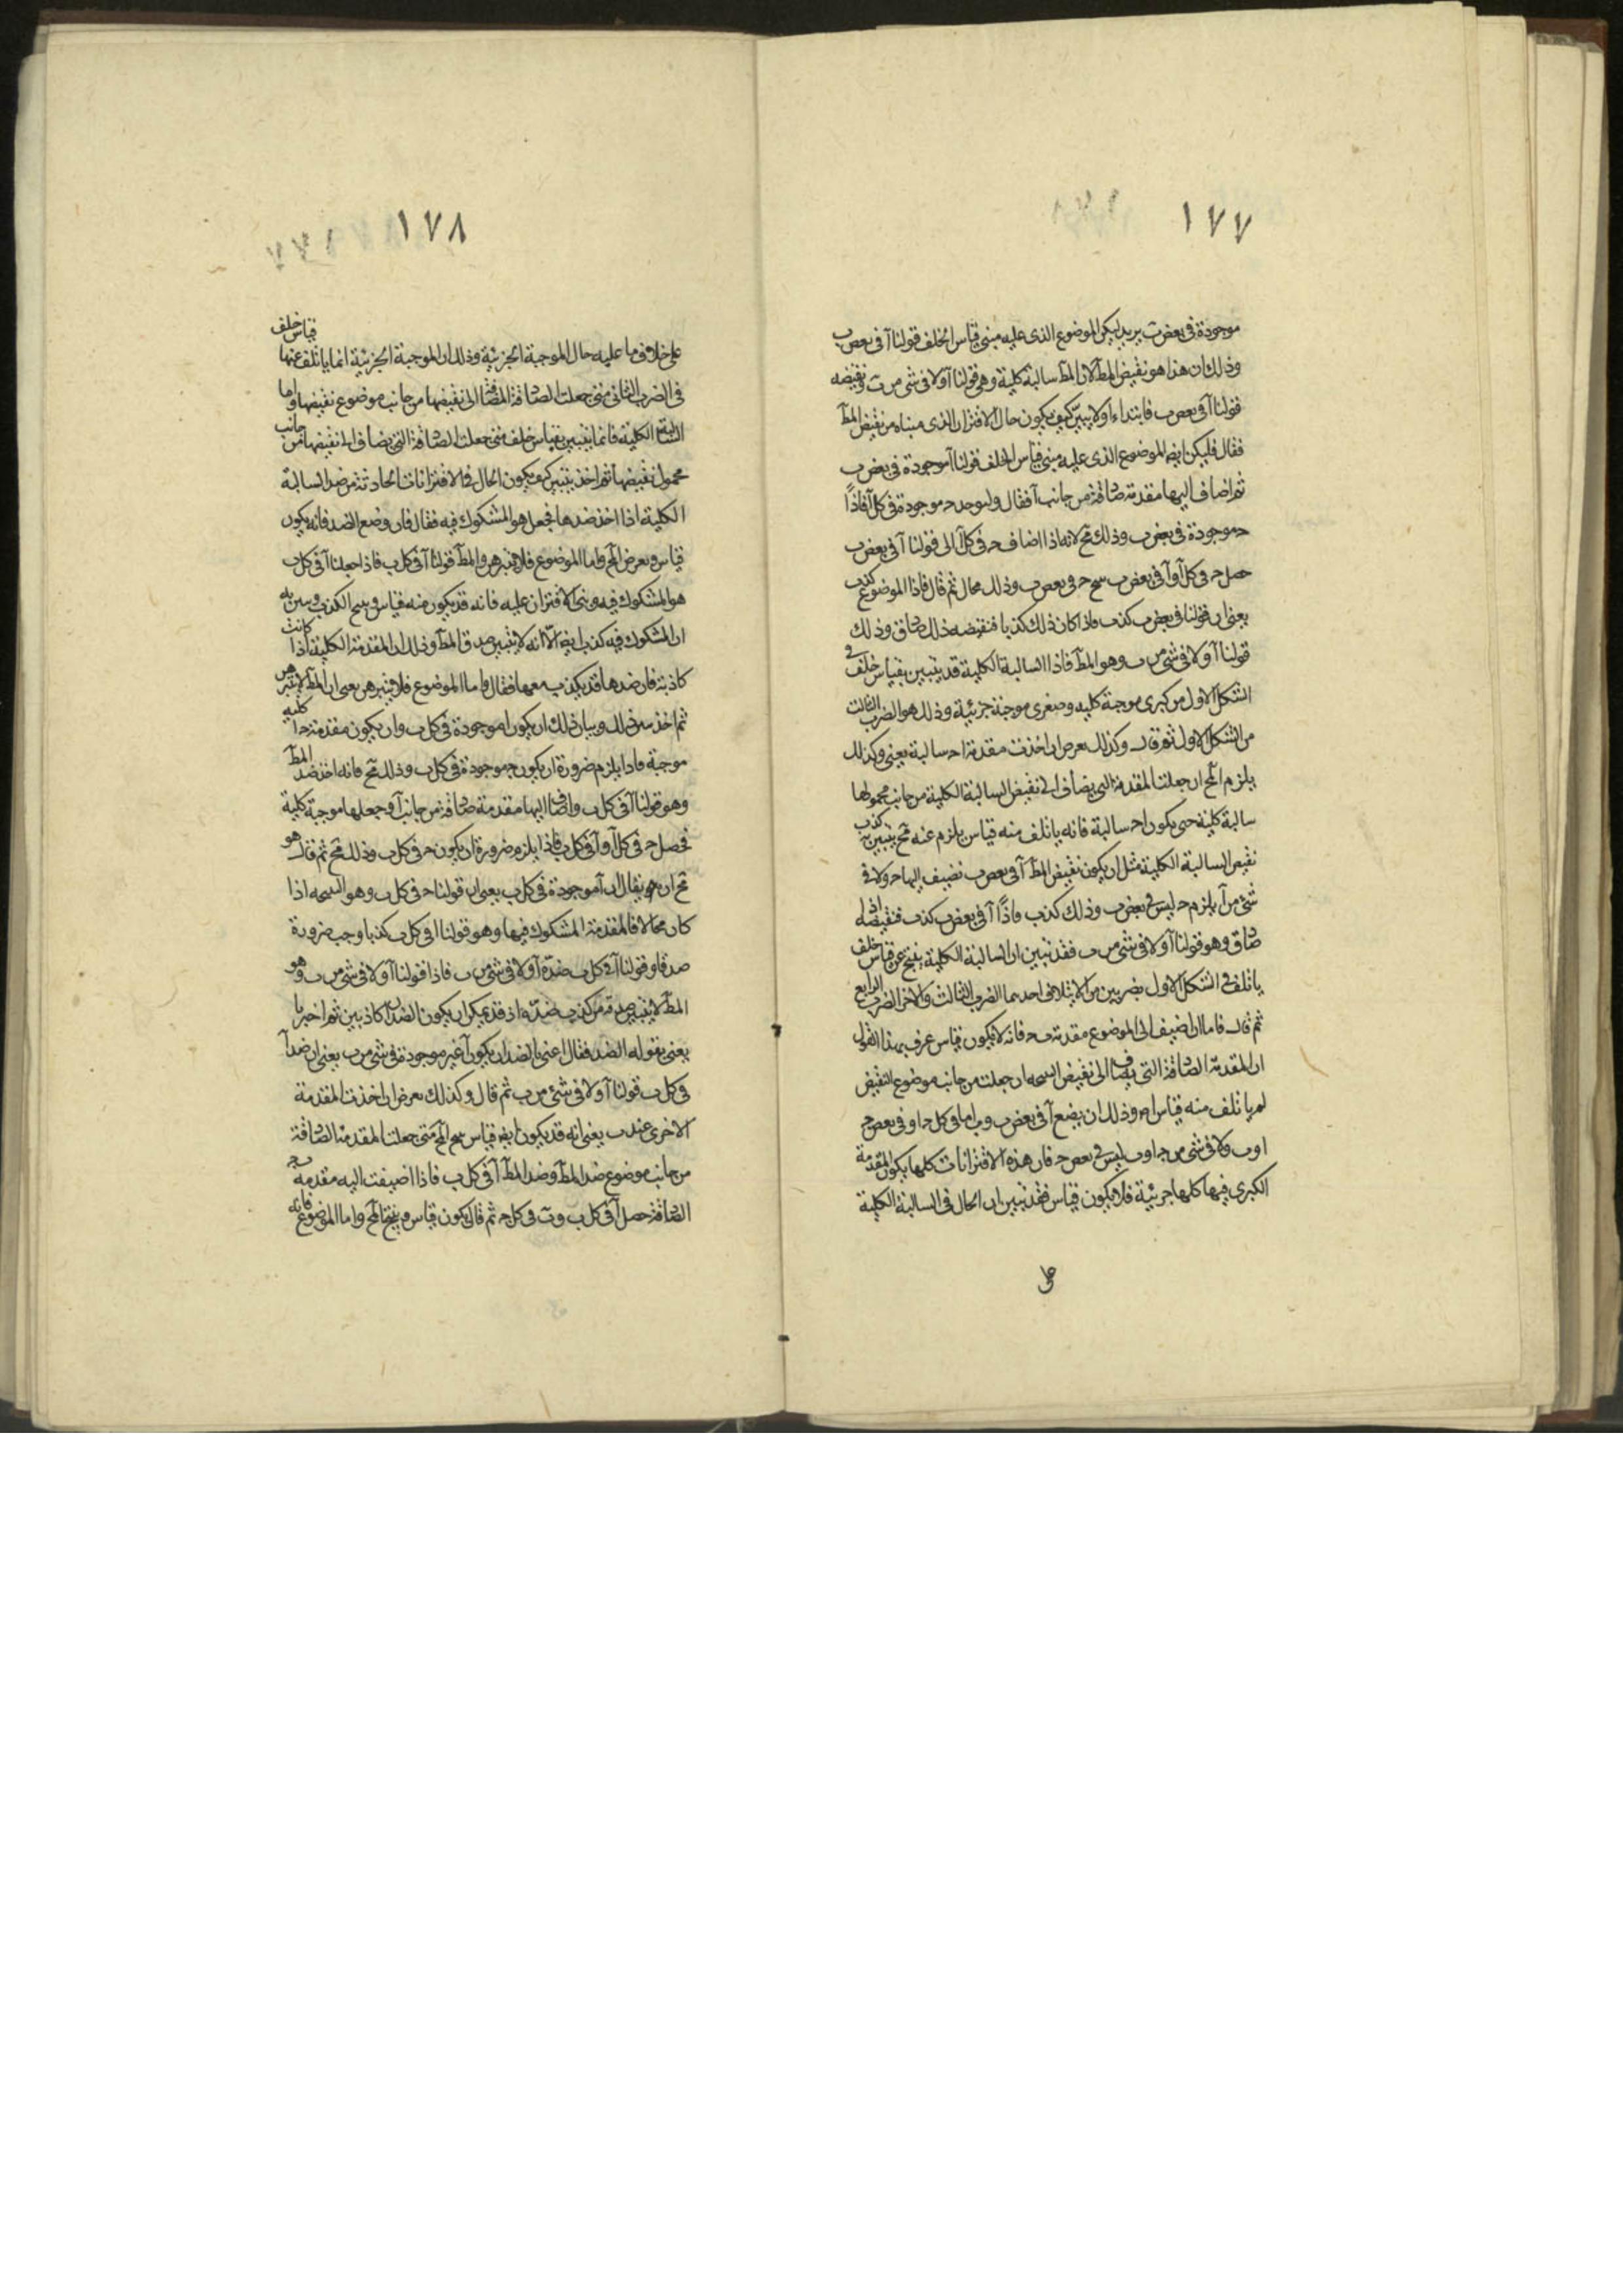 ١٧٧
موجودة فى بعض ب يريد ليكن الموضوع الذى عليه مبنى قياس الخلف قولنا آ فى بعض ب
وذلك ان هذا هو نقيض المط لان المط سالبة كلية وهى قولنا آ ولا فى شى من ب ونقيضه
قولنا آ فى بعض ب فابتداء اولا يبين كيف يكون حال الاقتران الذى مبناه من نقيض المط
فقال فليكن ايضا الموضوع الذى عليه مبنى قياس الخلف قولنا آ موجودة فى بعض ب
ثم اضاف اليها مقدمة صادقة من جانب آ فقال وليوجد حـ موجودة فى كل آ فاذًا
حـ موجودة فى بعض ب وذلك مح لانه اذا اضاف حـ فى كل آ الى قولنا آ فى بعض ب
حصل حـ فى كل آ وآ فى بعض ب ينتج حـ فى بعض ب وذلك محال ثم قال فاذا الموضوع كذب
يعنى ان قولنا فى بعض ب كذب فاذا كان ذلك كذبا فنقيضه ذلك صادق وذلك
قولنا آ ولا فى شى من ب وهو المط فاذا السالبة الكلية قد يتبين بقياس خلف فى
الشكل الاول من كبرى موجبة كلية وصغرى موجبة جزئية وذلك هو الضرب الثالث
من الشكل الاول ثم قال وكذلك يعرض ان اخذت مقدمة ا حـ سالبة يعنى وكذلك
يلزم المح ان جعلت المقدمة التى يضاف الى نقيض السالبة الكلية من جانب محمولها
سالبة كلية حتى يكون ا حـ سالبة فانه يأتلف منه قياس يلزم عنه مح يتبين به كذب
نقيض السالبة الكلية مثل ان يكون نقيض المط آ فى بعض ب نضيف اليها حـ ولا فى
شئ من آ يلزم حـ ليس فى بعض ب وذلك كذب فاذًا آ فى بعض ب كذب فنقيضه اذا
صادق وهو قولنا آ ولا فى شى من ب فقد تبين ان السالبة الكلية ينتج عن قياس خلف
ياتلف فى الشكل الاول بضربين من الائتلاف احدهما الضرب الثالث والاخر الضرب الرابع
ثم قال فاما ان اضيف الى الموضوع مقدمة ب حـ فانه لا يكون قياس عرف بهذا القول
ان المقدمة الصادقة التى يضاف الى نقيض النتيجة ان جعلت من جانب موضوع النقيض
لم ياتلف منه قياس اصلا وذلك ان يضع آ فى بعض ب وب اما فى كل حـ او فى بعض حـ
او ب ولا فى شى من حـ او ب ليس فى بعض حـ فان هذه الاقترانات كلها يكون المقدمة
الكبرى فيها كلها جزئية فلا يكون قياس فقد تبين ان الحال فى السالبة الكلية
على
١٧٨
على خلاف ما عليه حال الموجبة الجزئية وذلك ان الموجبة الجزئية انما ياتلف عنها قياس خلف
فى الضرب الثانى متى جعلت الصادقة المضافة الى نقيضها من جانب موضوع نقيضها واما
السالبة الكلية فانما يتبين بقياس خلف متى جعلت الصادقة التى يضاف الى نقيضها من جانب
محمول نقيضها ثم اخذ يتبين كيف يكون الحال فى الاقترانات الحادثة من ضد السالبة
الكلية اذا اخذ ضدها فجعل هو المشكوك فيه فقال فان وضع الضد فانه يكون
قياس ويعرض المح واما الموضوع فلا يتبرهن والمط قولنا آ فى كل ب فاذا جعلنا آ فى كل ب
هو المشكوك فيه وبنى الاقتران عليه فانه قد يكون منه قياس وينتج الكذب ويبين به
ان المشكوك فيه كذب ايضا الا انه لا يتبين صدق المط وذلك ان المقدمة الكلية اذا كانت
كاذبة فان ضدها قد يكذب معها فقال فاما الموضوع فلا يتبرهن يعنى ان المط لا يتبرهن
ثم اخذ يبين ذلك وبيان ذلك ان يكون ا موجودة فى كل ب وان يكون مقدمة حـ ا كلية
موجبة فاذا يلزم ضرورة ان يكون حـ موجودة فى كل ب وذلك مح فانه اخذ ضد المط
وهو قولنا آ فى كل ب واضاف اليها مقدمة صادقة من جانب آ وجعلها موجبة كلية
فحصل حـ فى كل آ وآ فى كل ب فاذا يلزم ضرورة ان يكون حـ فى كل ب وذلك مح ثم قال هو
مح ان يقال ان آ موجودة فى كل ب يعنى ان قولنا حـ فى كل ب وهو النتيجة اذا
كان محالا فالمقدمة المشكوك فيها وهو قولنا ا فى كل ب كذبا وجب ضرورة
صدقا وقولنا آ فى كل ب ضده آ ولا فى شئ من ب فاذا قولنا آ ولا فى شئ من ب وهو
المط لا يتبين صدقه من كذب ضده اذ قد يمكن ان يكون الضدان كاذبين ثم اخبر ما
يعنى بقوله الضد فقال اعنى بالضد ان يكون آ غير موجودة فى شى من ب يعنى ان ضد آ
فى كل ب قولنا آ ولا فى شئ من ب ثم قال وكذلك يعرض ان اخذت المقدمة
الاخرى عند ب يعنى انه قد يكون ايضا قياس ينتج المح متى جعلت المقدمة الصادقة
من جانب موضوع ضد المط وضد المط آ فى كل ب فاذا اضيفت اليه مقدمة ب حـ
الصادقة حصل آ فى كل ب وب فى كل حـ ثم قال يكون قياس وينتج المح واما الموضوع فانه